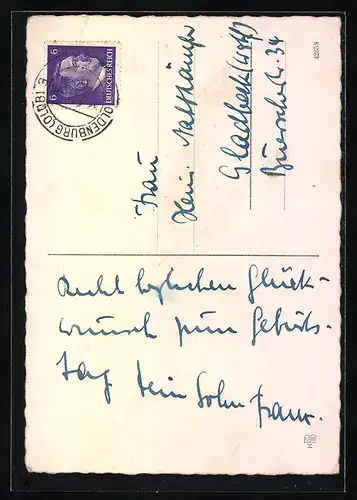 6 6
DEUTSCHES REICH
OLDENBURG (OLDB) 3
42658
Frau
Hein.
Gladbeck (Westf)
34
Recht herzlichen Glück-
wunsch zum Geburts-
tag Dein Sohn Franz.